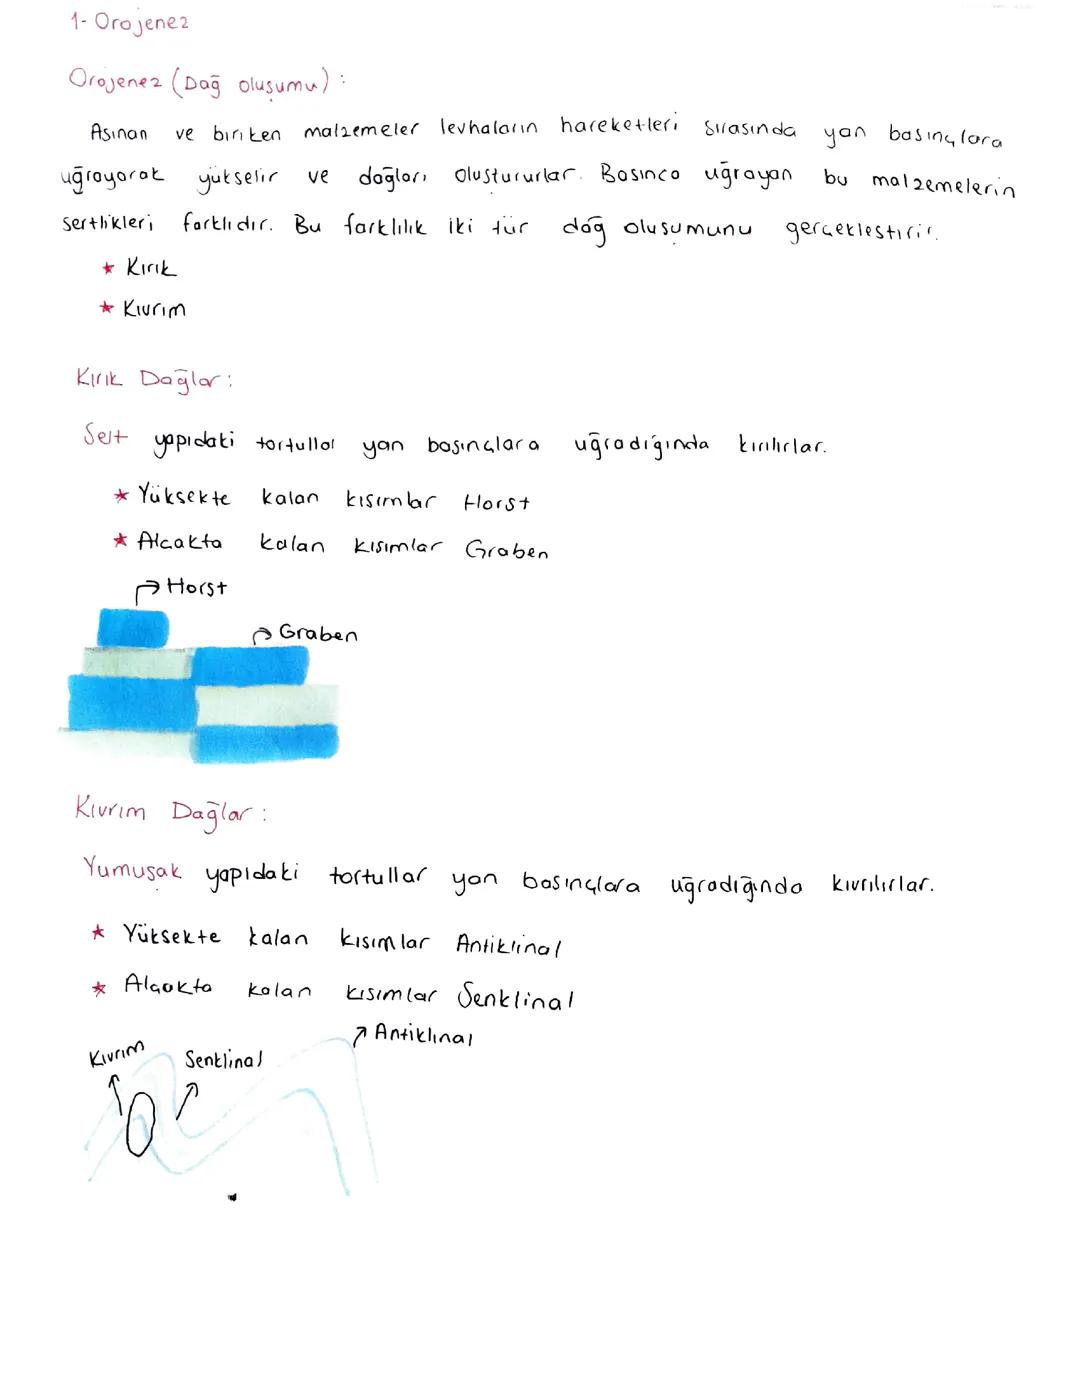 1- Orojenez
Orojenez (Dağ oluşumu) :
Aşınan ve biriken malzemeler levhaların hareketleri sırasında yan basınçlara
uğrayarak yükselir ve dağları oluştururlar. Basınca uğrayan bu malzemelerin
sertlikleri farklıdır. Bu farklılık iki tür dağ oluşumunu gerçekleştirir.
★ Kırık
★ Kıvrım
Kırık Dağlar :
Sert yapıdaki tortullar yan basınçlara uğradığında kırılırlar.
★ Yüksekte kalan kısımlar Horst
★ Alçakta kalan kısımlar Graben
Horst
Graben
Kıvrım Dağlar :
Yumuşak yapıdaki tortullar yan basınçlara uğradığında kıvrılırlar.
★ Yüksekte kalan kısımlar Antiklinal
★ Alçakta kalan kısımlar Senklinal
Antiklinal
Kıvrım
Senklinal